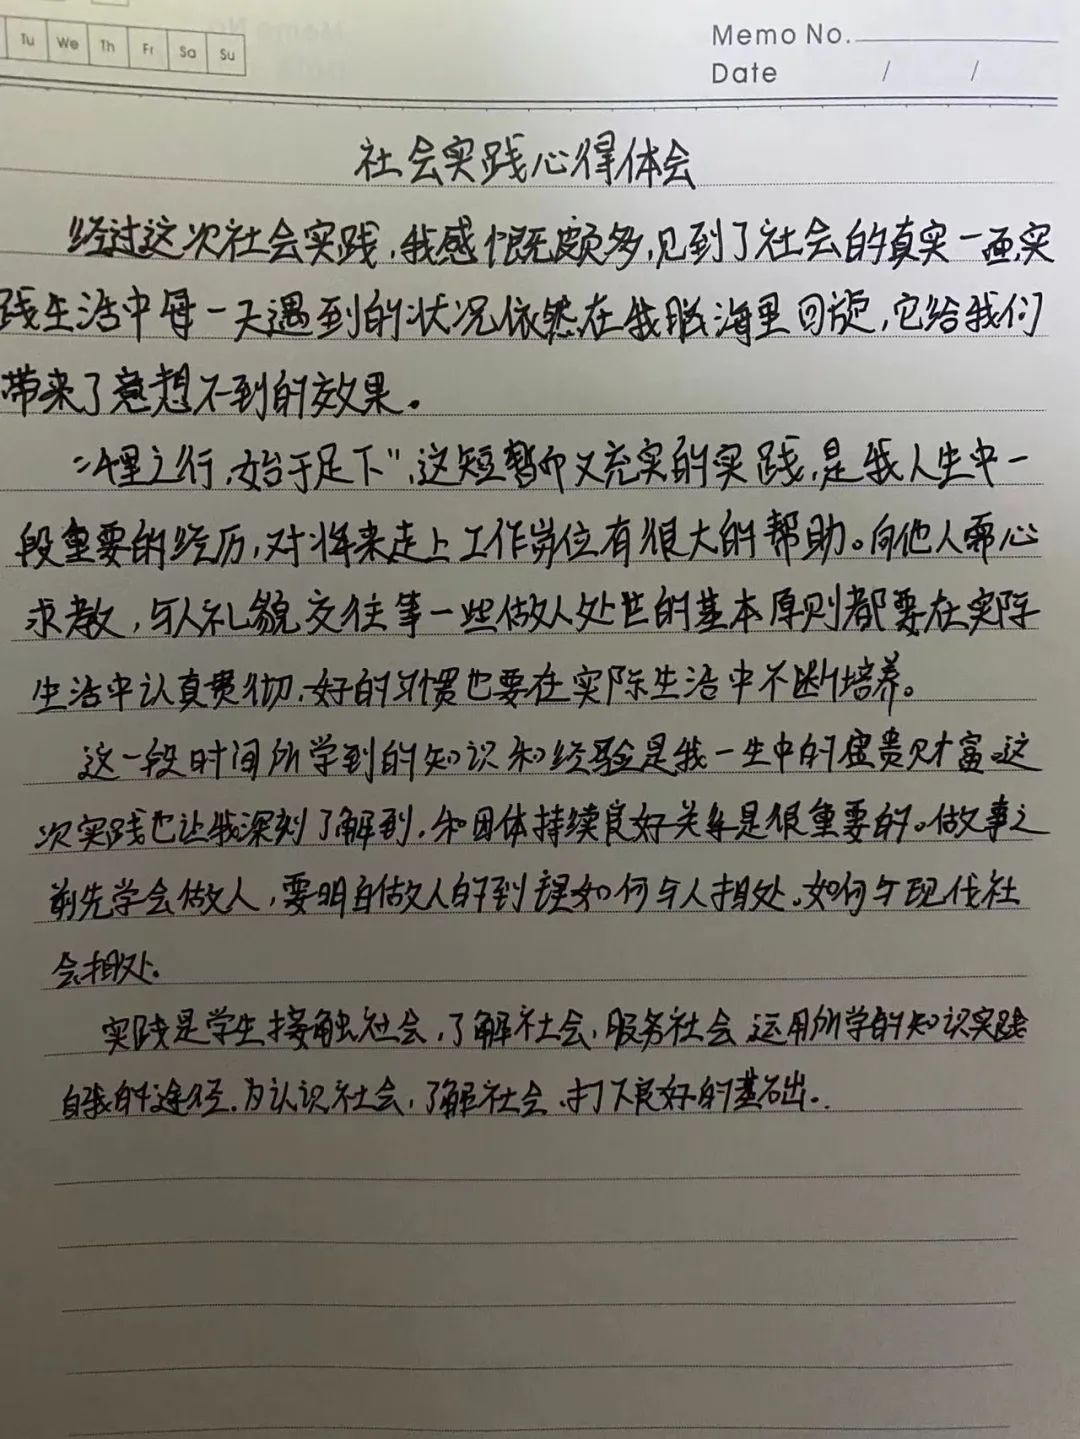 Tu We Th Fr Sa Su
Memo No.
Date / /
社会实践心得体会
经过这次社会实践,我感慨颇多,见到了社会的真实一面,实
践生活中每一天遇到的状况依然在我脑海里回旋,它给我们
带来了意想不到的效果。
"千里之行,始于足下",这短暂而又充实的实践,是我人生中一
段重要的经历,对将来走上工作岗位有很大的帮助。向他人虚心
求教,与人礼貌交往等一些做人处世的基本原则都要在实际
生活中认真贯彻,好的习惯也要在实际生活中不断培养。
这一段时间所学到的知识和经验是我一生中的宝贵财富。这
次实践也让我深刻了解到,和团体持续良好关系是很重要的。做事之
前先学会做人,要明白做人的到理如何与人相处。如何与现代社
会相处。
实践是学生接触社会,了解社会,服务社会,运用所学的知识实践
自我的途径。为认识社会,了解社会,打下良好的基础。